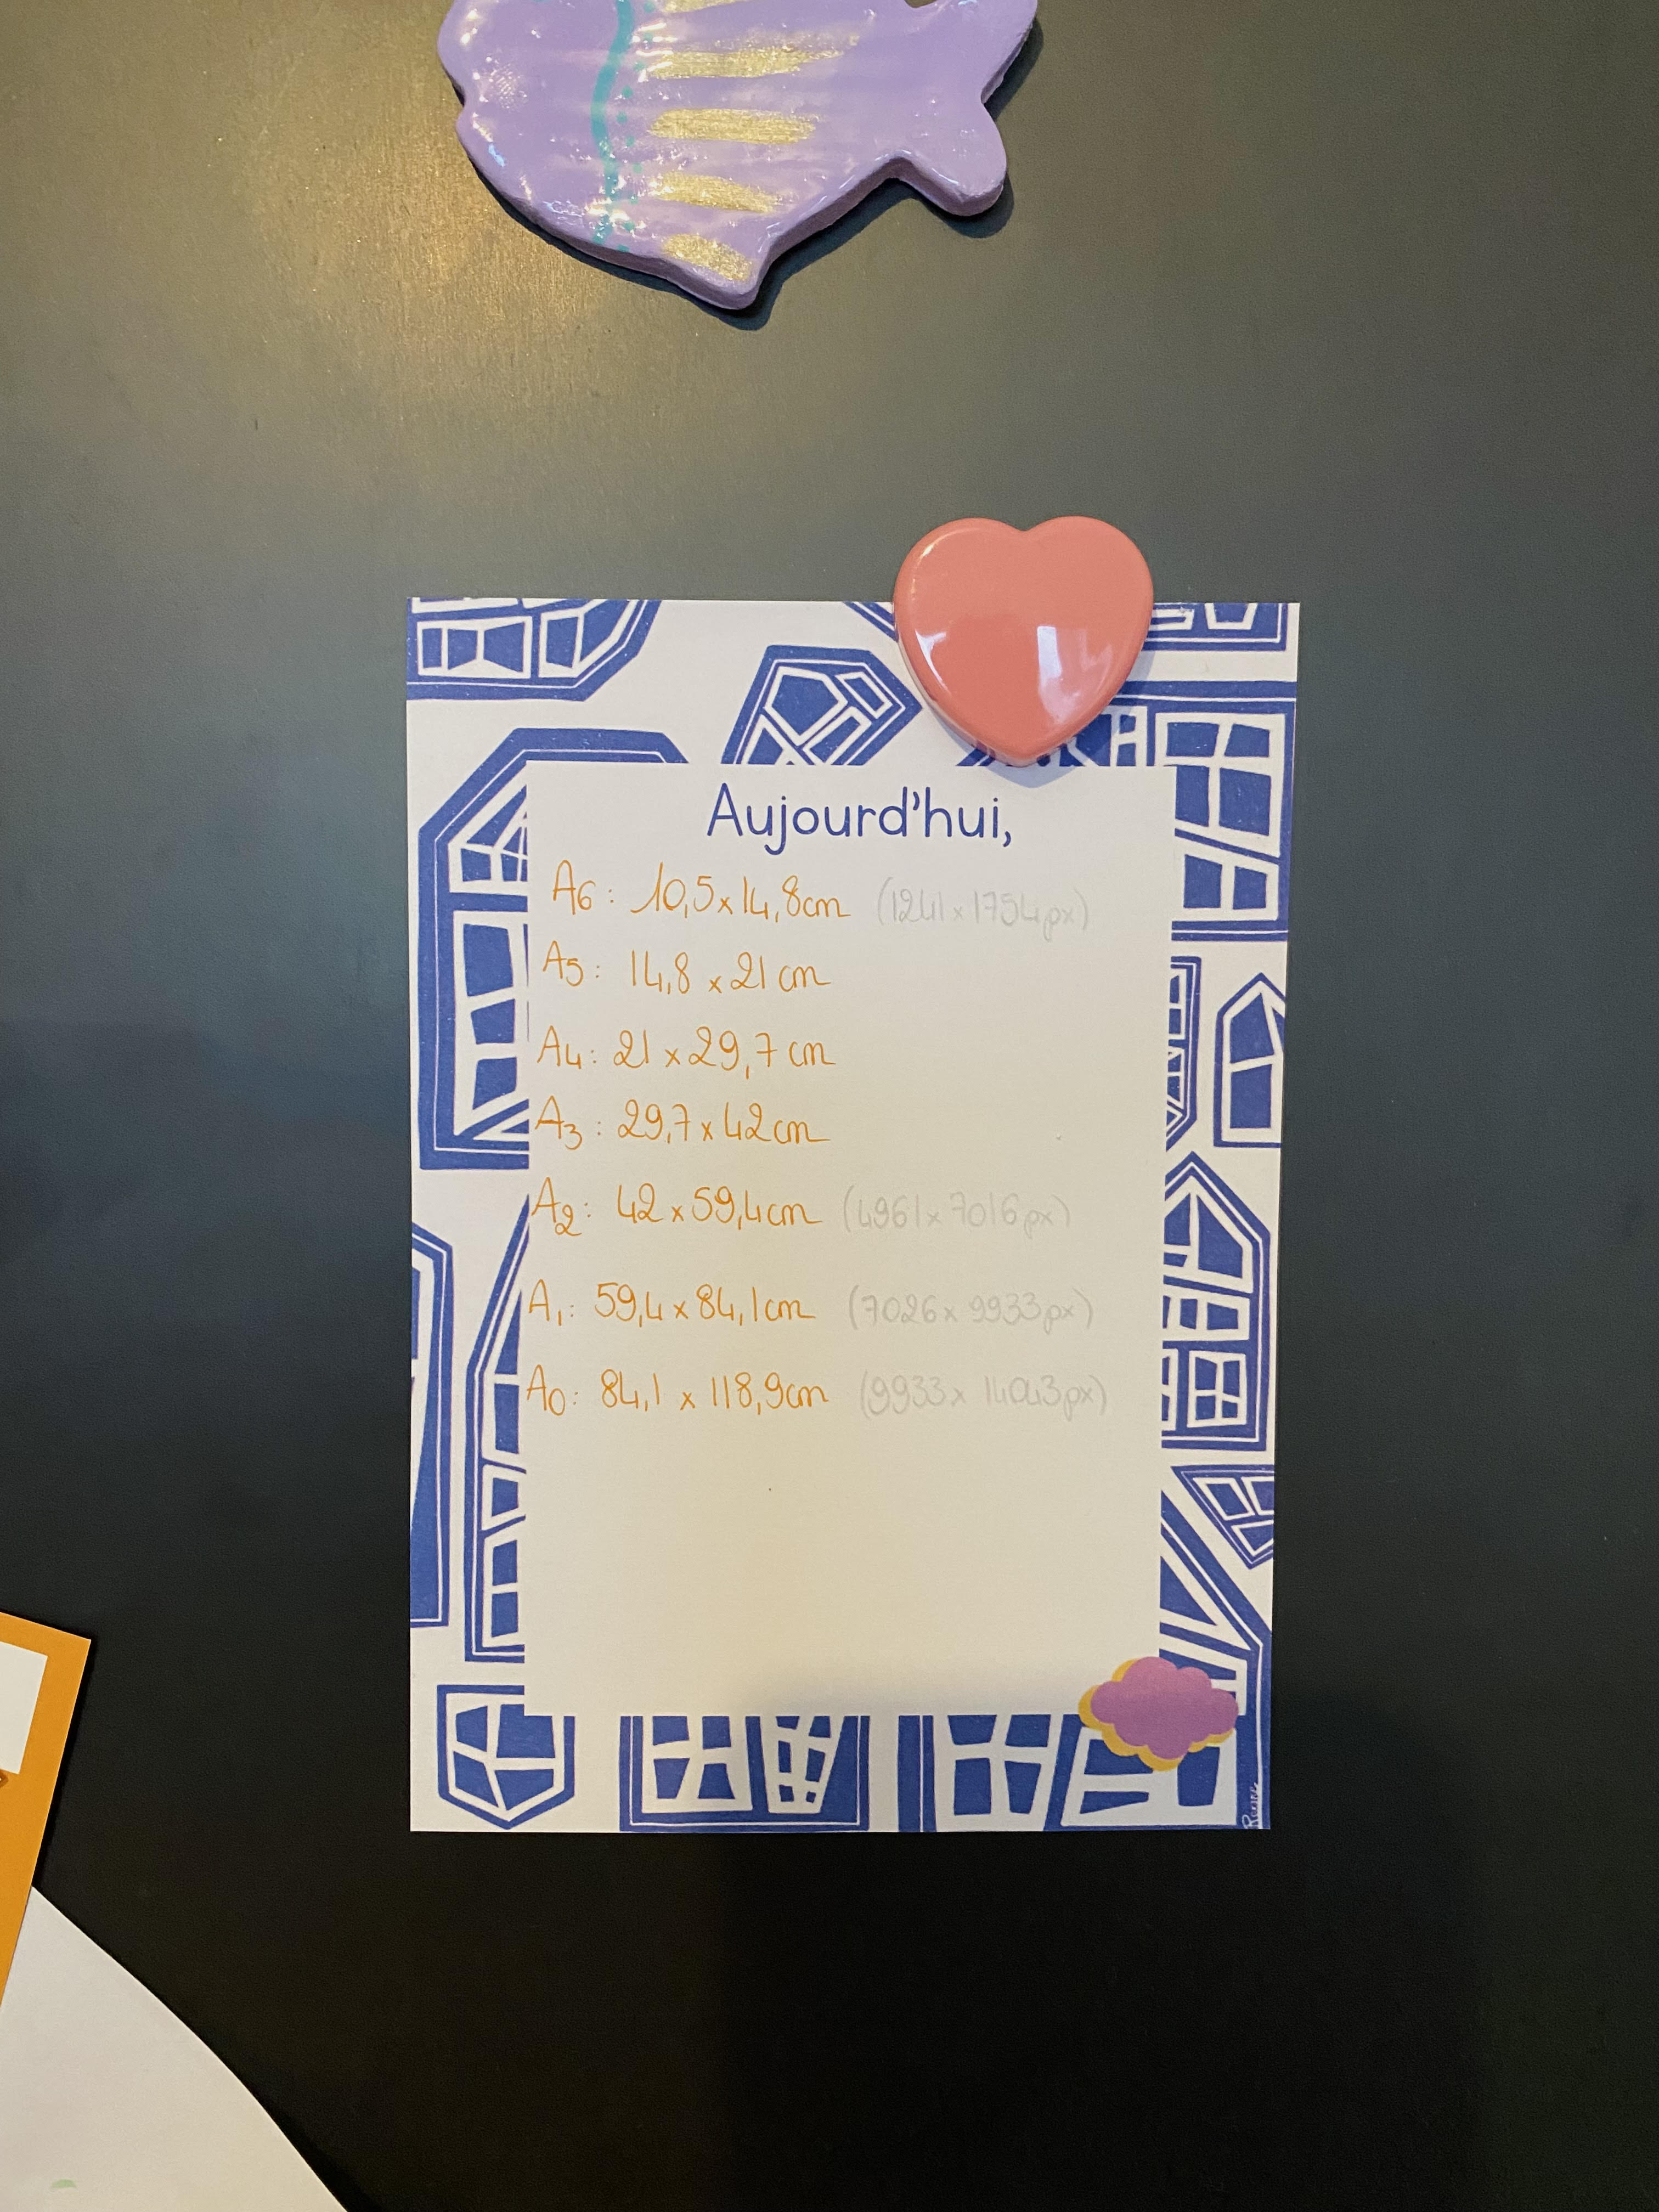 Aujourd'hui,
A6 : 10,5 x 14,8cm (1241 x 1754px)
A5 : 14,8 x 21 cm
A4 : 21 x 29,7 cm
A3 : 29,7 x 42cm
A2 : 42 x 59,4cm (4961 x 7016px)
A1 : 59,4 x 84,1cm (7026 x 9933px)
A0 : 84,1 x 118,9cm (9933 x 14043px)